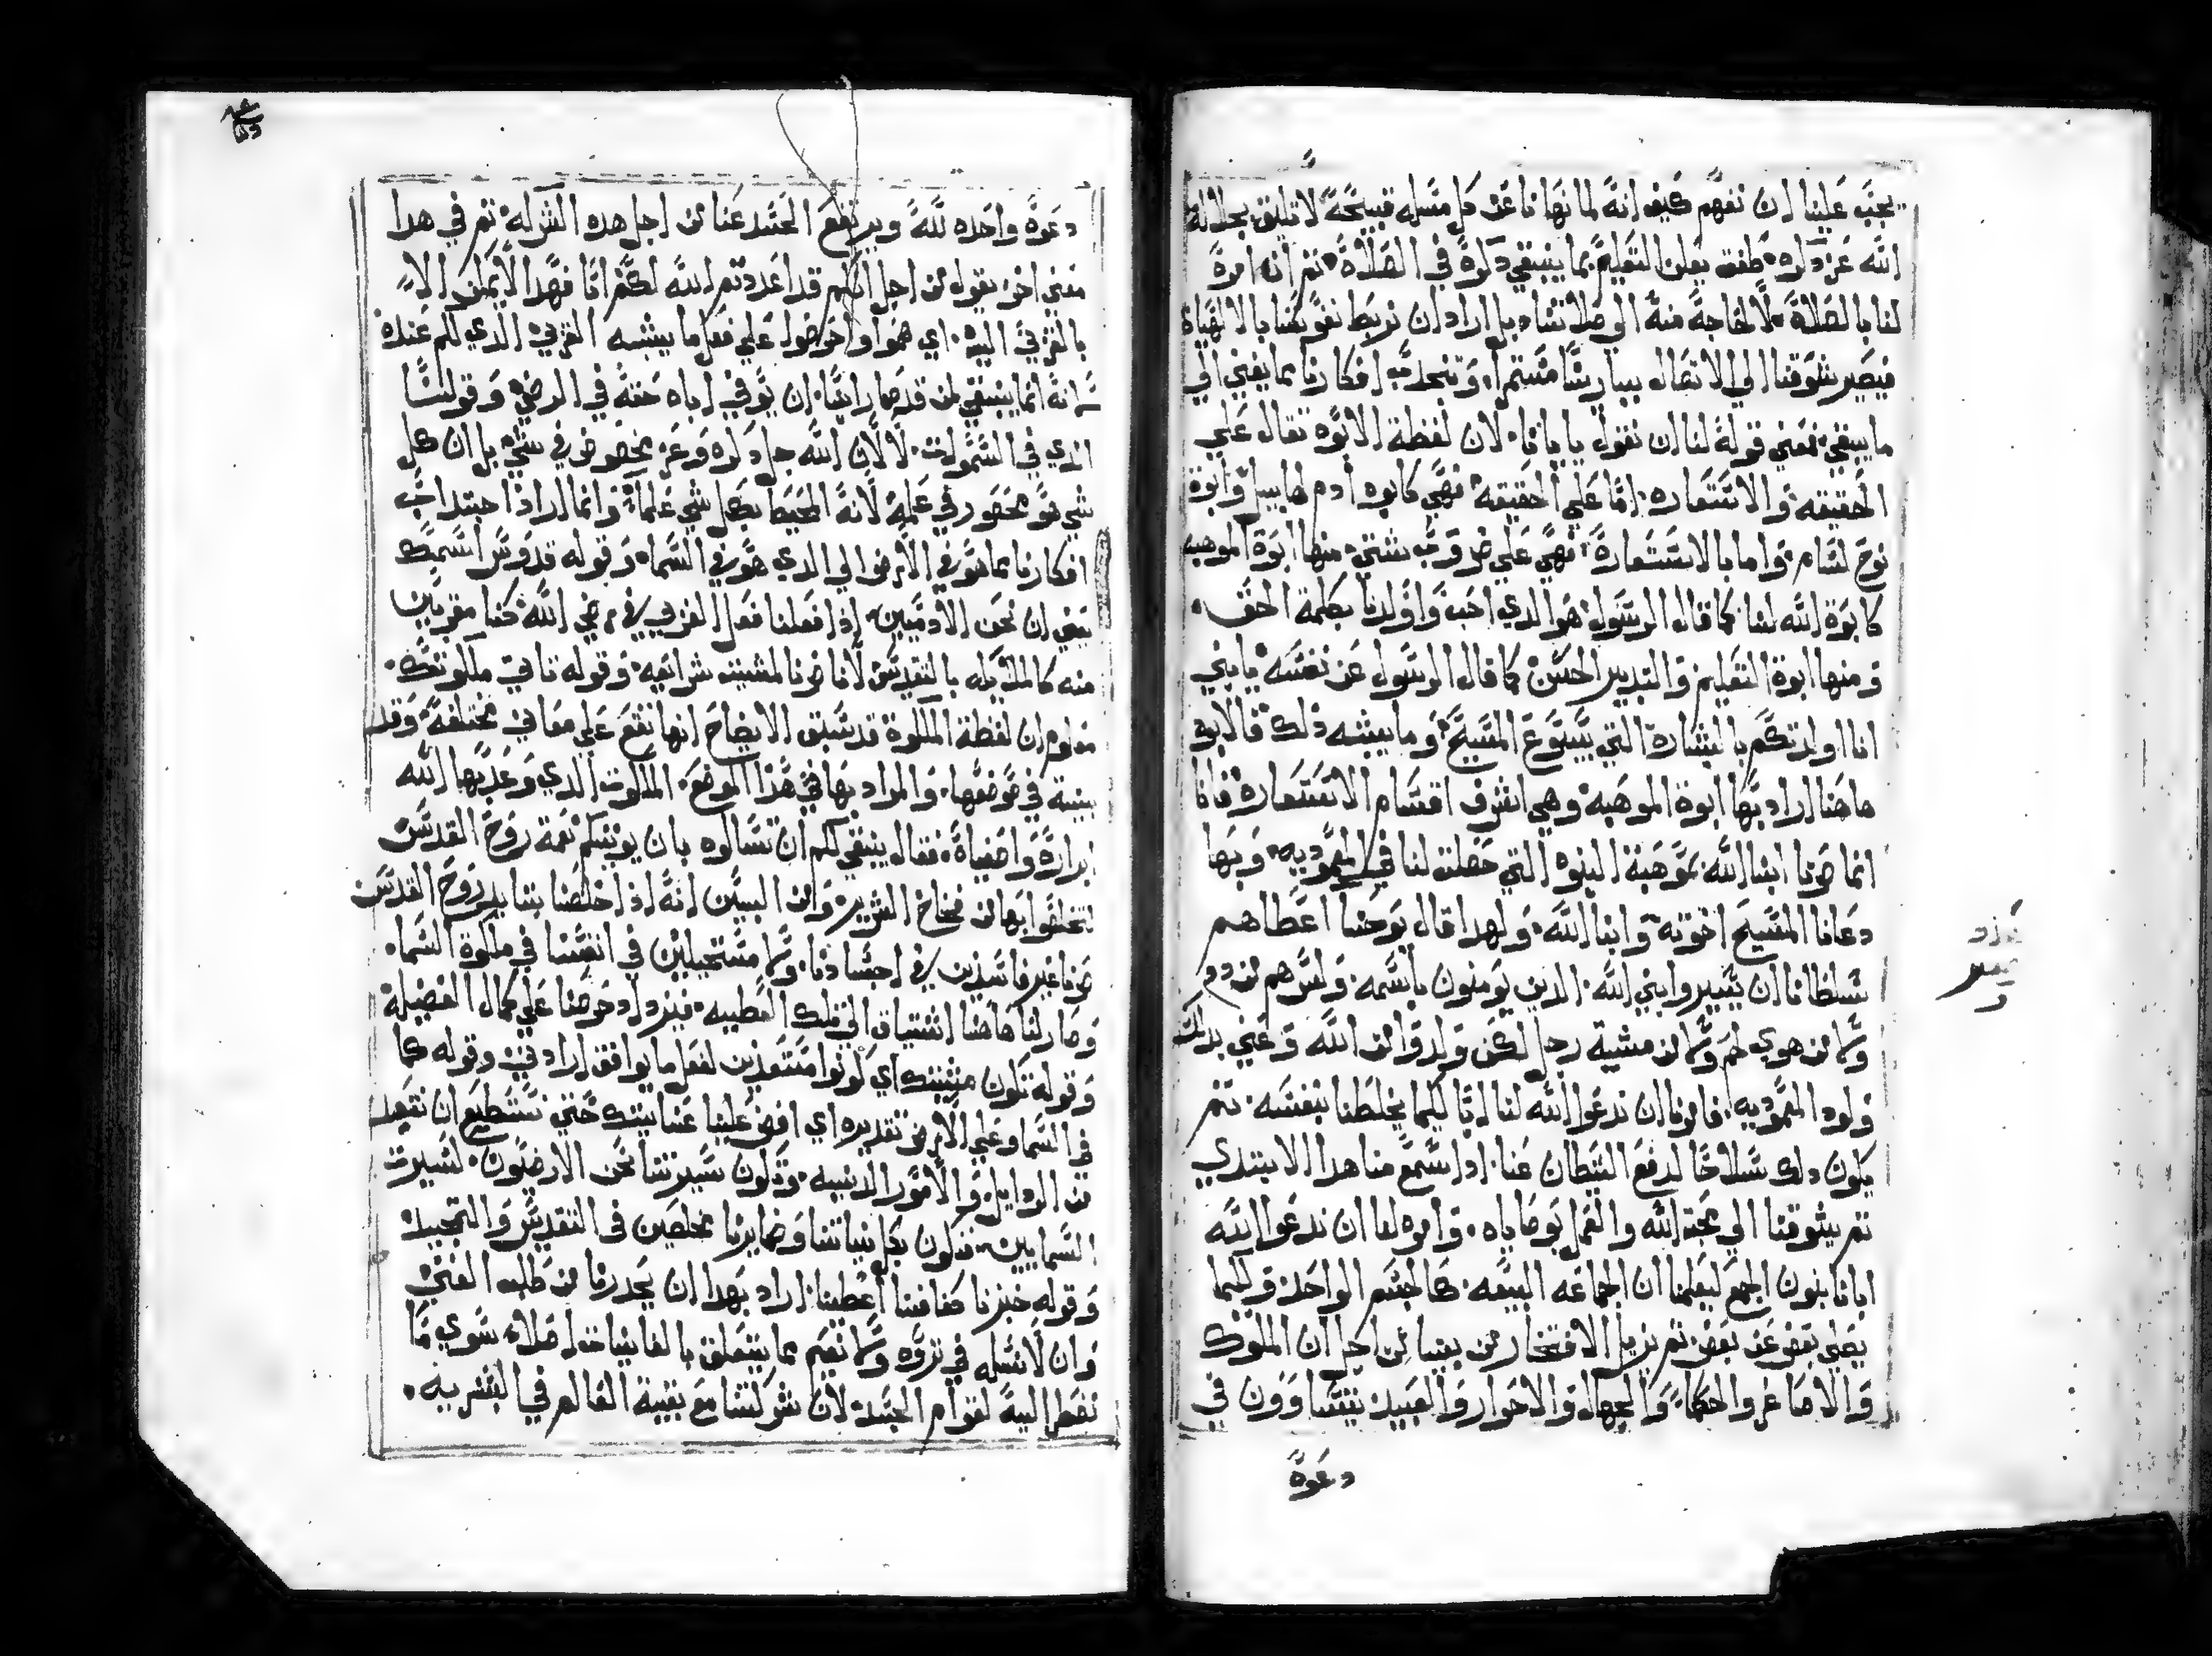 يجب علينا ان نفهم كيف انه لما نهانا عن كل مسله قبيحة لا تليق بجلالة
الله عز ذكره طفق يعلن التعليم بما ينبغي ذكره في الصلاة ثم ان امره
لنا بالصلاة لا لحاجة منه الي صلاتنا بل اراد ان نربط نفوسنا بالالهياة
فيصير شوقنا الي الاتصال ببارينا مستمرا وتنجدب افكارنا مما يفني الي
ما يبقي فمعني قوله لنا ان نقول يابانا لان لفظة الابوه تقال علي
الحقيقه والاستعاره اما علي الحقيقه فهي كابوه ادم لهابيل وابوة
نوح لسام واما بالاستعارة فهي علي ضروب شتي منها ابوة الموهبه
كابوة الله لنا كما قال الرسول هو الدي احب واولدنا بكلمة الحق
ومنها ابوة التعليم والتدبير الحسن كما قال الرسول عن نفسه يابني
انا اولدتكم بالبشارة التي يسوع المسيح وما يشبه ذلك فالابوه
هاهنا اراد بها ابوة الموهبه وهي اشرف اقسام الاستعارة فانا
انما صرنا ابنا الله بموهبة البنوه التي حصلت لنا في المعموديه وبها
دعانا المسيح اخوته وابنا الله ولهدا قال يوحنا اعطاهم
سلطانا ان يصيروا بني الله الدين يومنون باسمه وليس هم من دم
ولا من هوي لحم ولا من مشية رجل لكن ولدوا من الله وعني بدلك
ولود المعموديه فامرنا ان ندعو الله لنا ابا كيما يخلطنا بنفسه ثم
يكون دلك سلاحا لدفع الشيطان عنا ادا سمع منا هدا الابتدي
ثم يشوقنا الي محبة الله والعمل بوصاياه وامره لنا ان ندعو الله
ابانا بنون الجمع ليعلمنا ان الجماعه البيعه كالجسم الواحد ولكيما
يصلي بعض عن بعض ثم يزيل الافتخار من بيننا من اجل ان الملوك
والاصاغر والحكما والجهال والاحرار والعبيد يتساوون في
دعوة
دعوة واحده لله ويرتفع الحسد عنا من اجل هده الشركه ثم في هدا
معني اخر يقول من اجل انكم قد اعددتم الله لكم ابا فهدا لا يمكن الا
بالقربي اليه اي هموا واحرضوا علي فعل ما يشبه القربي الدي لكم عنده
لانه انما ينبغي لمن قد صار ابنا ان يوفي اباه حقه في الرضي وقولنا
الدي في السموات لا لان الله جل ذكره وعز محصور في شي بل ان كل
شي هو محصور في علمه لانه المحيط بكل شي علما وانما اراد اجتداب
افكارنا مما هو في الارض الي الدي هو في السما وقوله قدوس اسمك
يعني ان نحن الادميين اذا فعلنا فعل القربي في رضي الله كنا مقربين
منه كالملايكه بالتقديس لانا صرنا لمشييته شرايعيه وقوله تاتي ملكوتك
معلوم ان لفظة الملكوة قد سبق الايضاح انها تقع علي معاني مختلفه وقد
بينته في موضعها والمراد بها في هذا الموضع الملكوت الدي وعد بها الله
ابراره واصفياه فقال ينبغي لكم ان تسالوه بان يوتيكم نعمة روح القدس
لتخلصوا بها من فخاخ الشرير ومن البين انه اذ اخلصنا بتاييد روح القدس
صرنا غير فاسدين في اجسادنا ولا مستحيلين في انفسنا في ملكوة السما
وصار لنا هاهنا اشتياق الي تلك العطيه فيزداد حرصنا علي كمال الفضيلة
وقوله تكون مشيتك اي كونوا مستعدين لفعل ما يوافق ارادتي وقوله كما
في السما وعلي الارض تقديره اي افض علينا عنايتك حتي نستطيع ان نتبعد
من الردايل والامور الدنييه وتكون سيرتنا نحن الارضيون كسيرت
السمايين فنكون بكل نياتنا وضمايرنا مخلصين في التقديس والتمجيد
وقوله خبزنا كفافنا اعطينا اراد بهدا ان يحدرنا من طلب الغني
وان لا نساله في تروه ولا نهتم مما يتعلق بالفانيات اصلا سوي ما
نضطر اليه لقوام الجسد لان شركتنا مع بقية العالم في البشريه